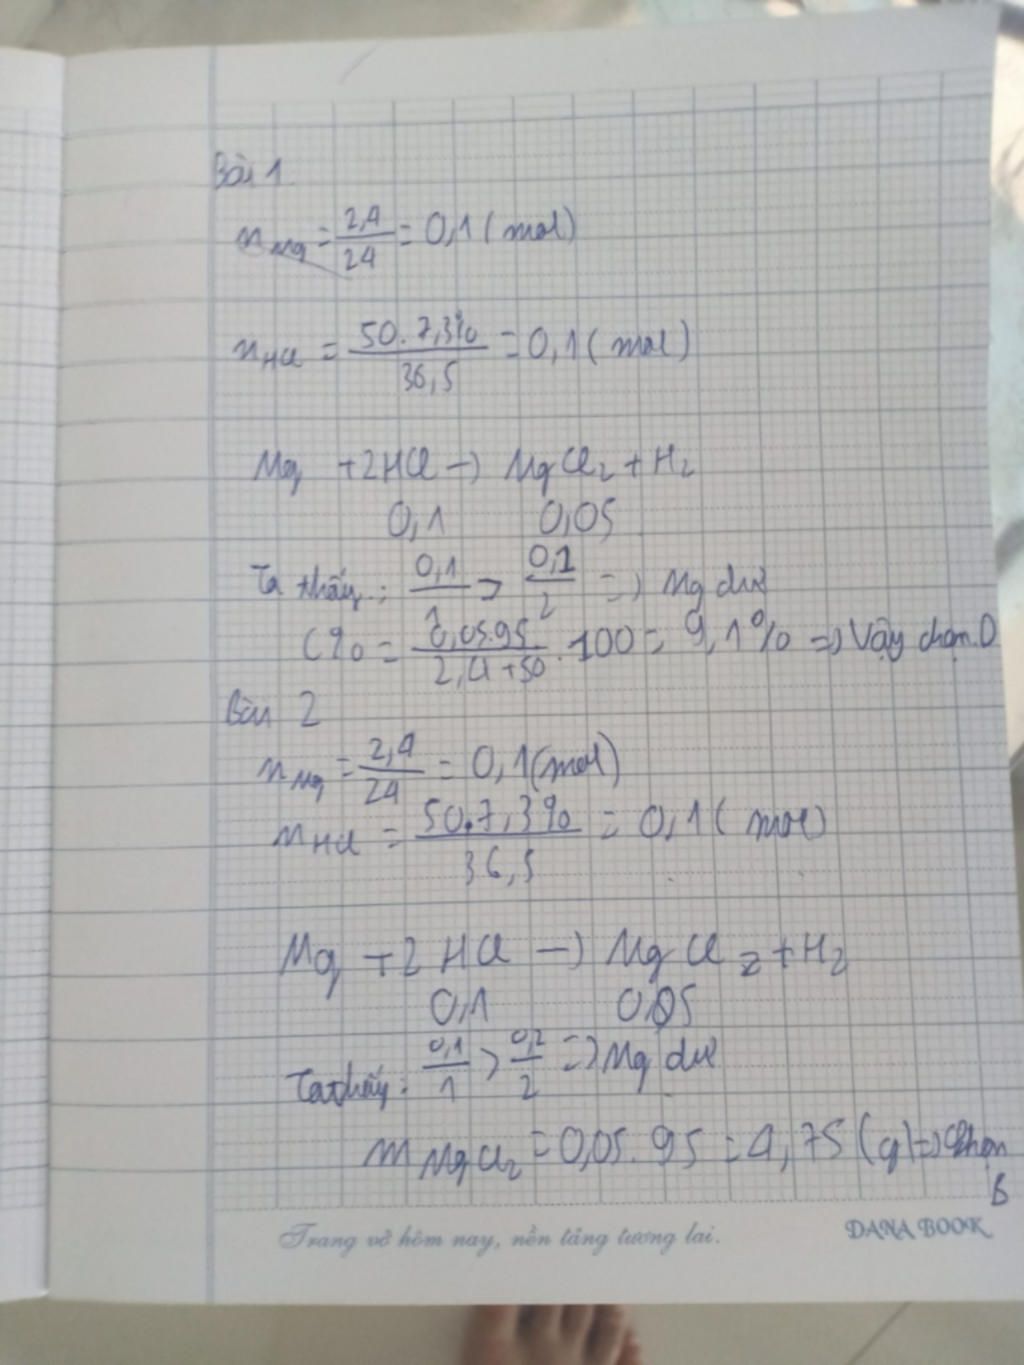 Bài 1
n Mg = 2,4/24 = 0,1 (mol)
n HCl = 50.7,3%/36,5 = 0,1 (mol)
Mg + 2HCl → MgCl2 + H2
0,1 0,05
Ta thấy: 0,1/1 > 0,1/2 => Mg dư
C% = 0,05.95/2,4+50 .100 = 9,1% => Vậy chọn D
Bài 2
n Mg = 2,4/24 = 0,1 (mol)
n HCl = 50.7,3%/36,5 = 0,1 (mol)
Mg + 2HCl → MgCl2 + H2
0,1 0,05
Ta thấy: 0,1/1 > 0,1/2 => Mg dư
m MgCl2 = 0,05.95 = 4,75 (g) => Chọn
B
Trang vở hôm nay, nền tảng tương lai. DANA BOOK